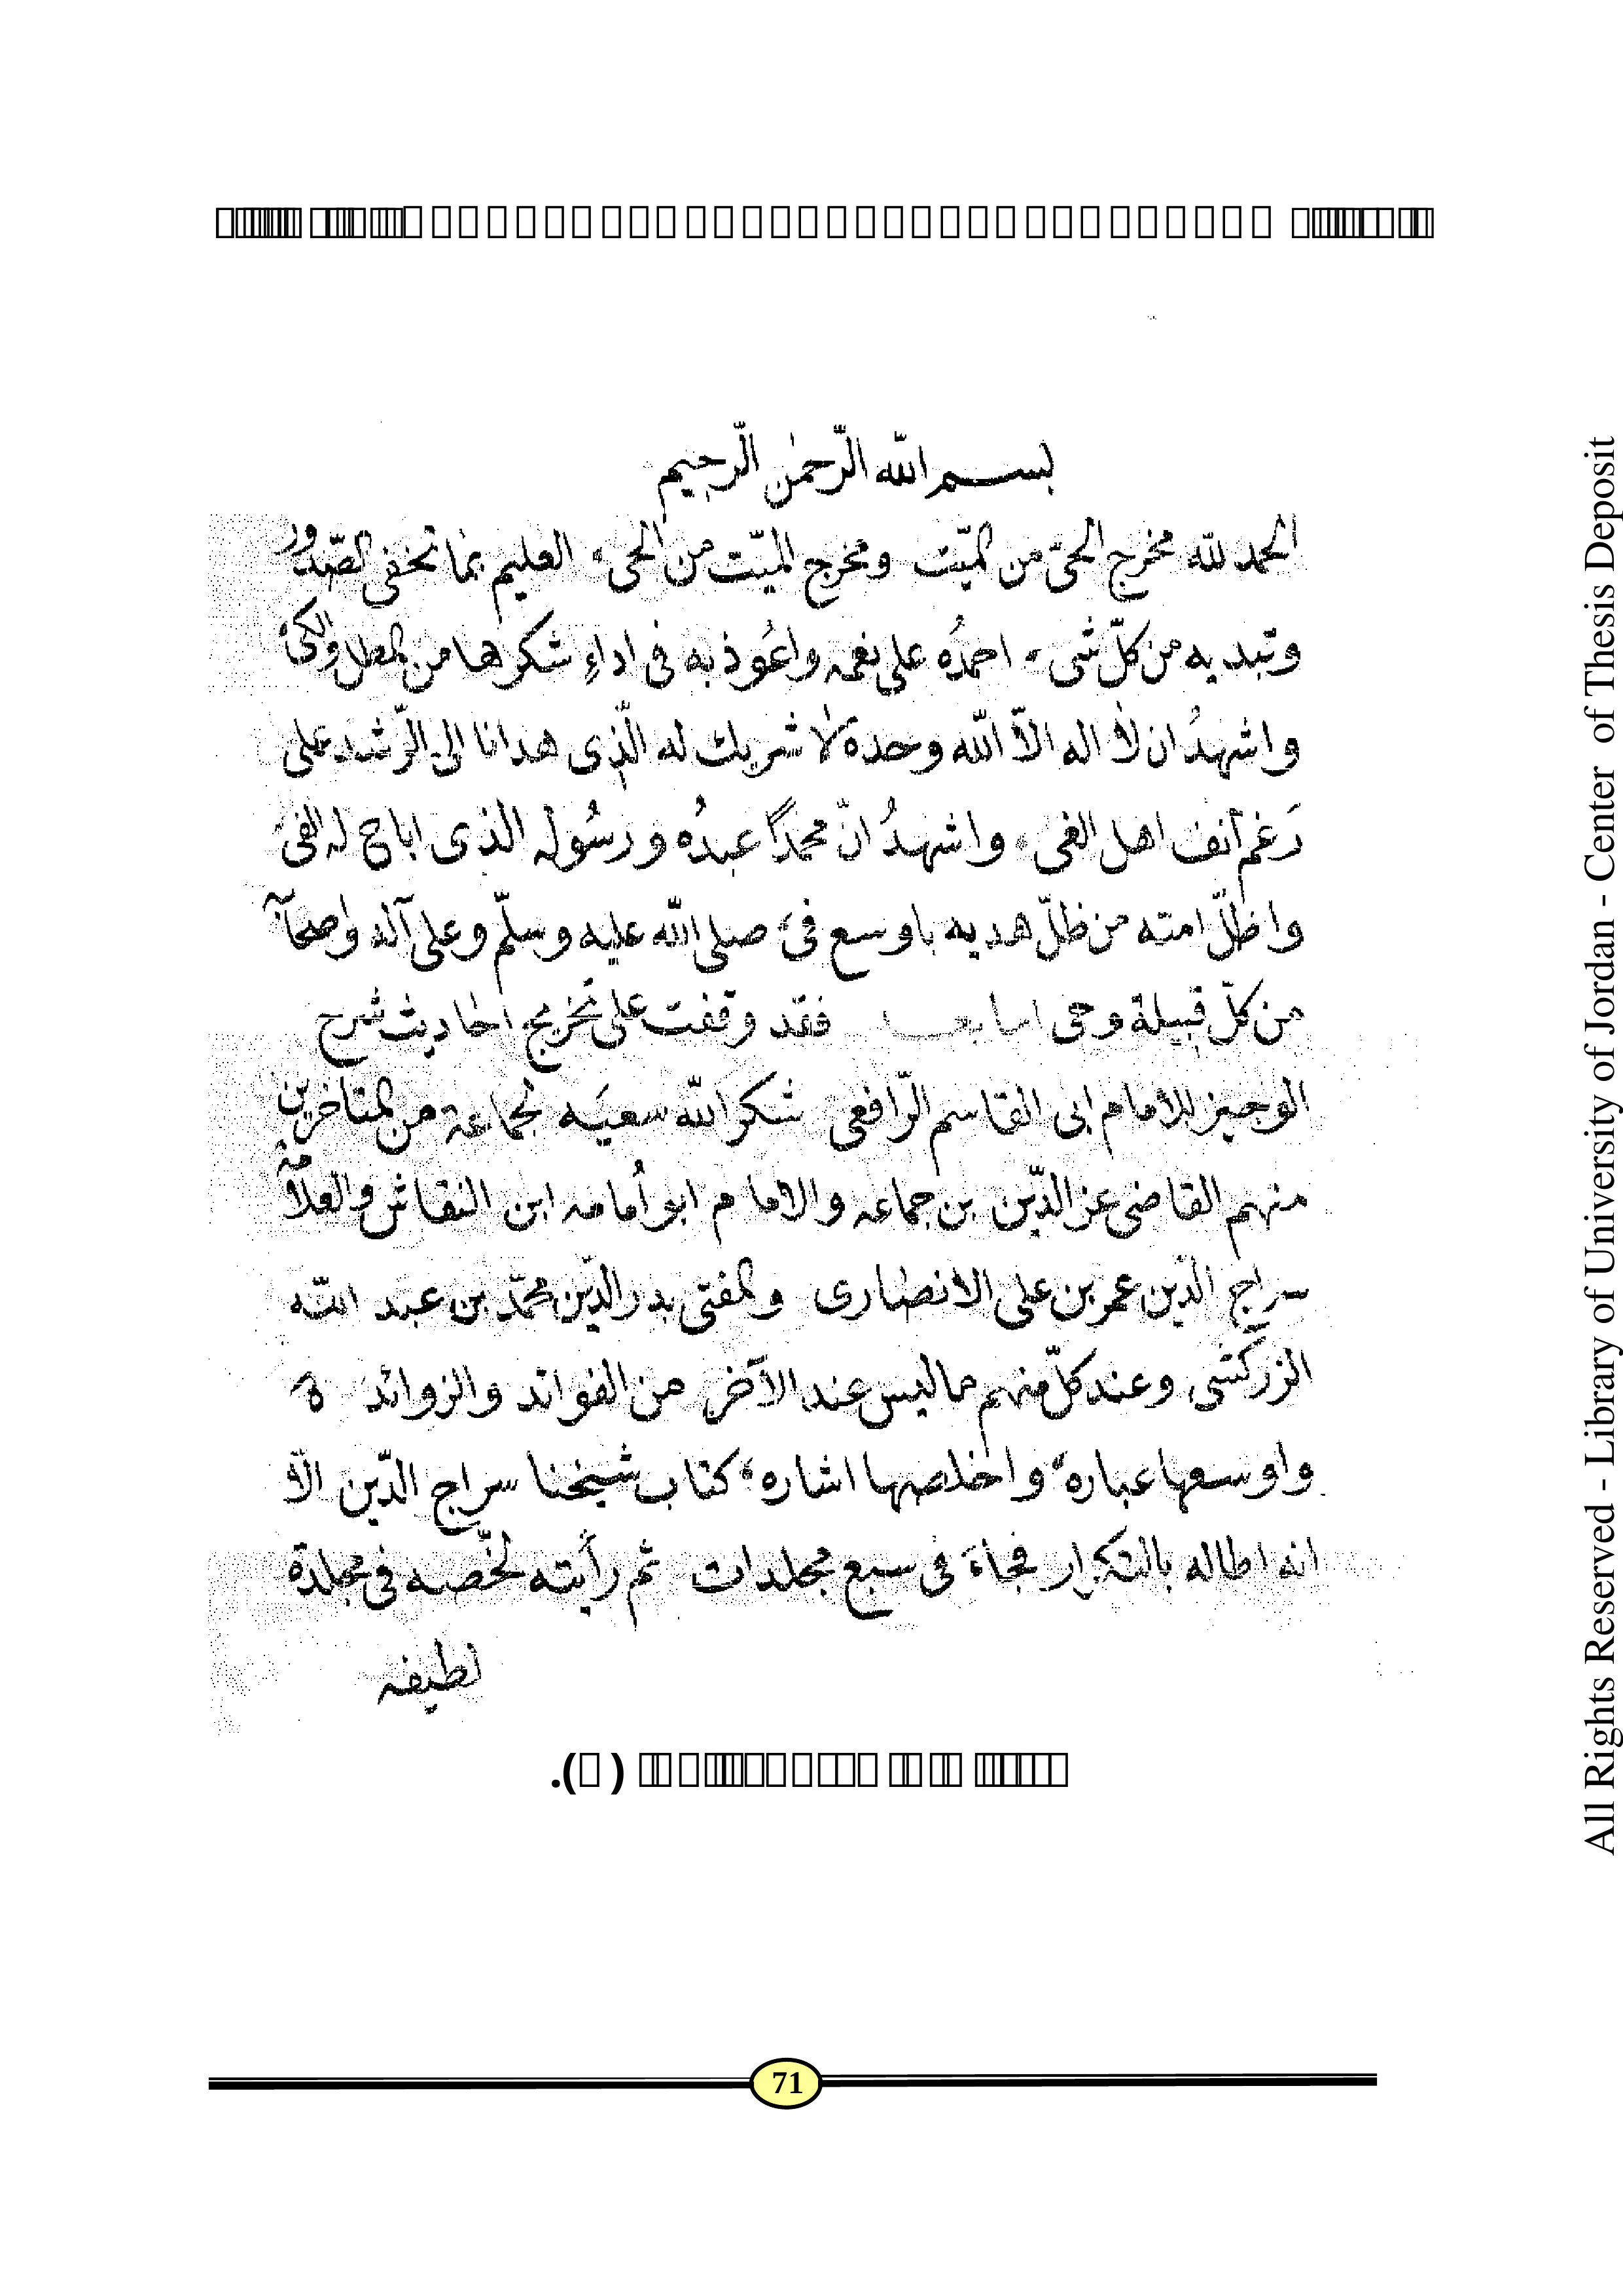 بسم الله الرّحمٰن الرّجيم
الحمد لله مخرج الحىّ من الميّت ومخرج الميّت من الحى، العليم بما تخفى الصّدور
وتبديه من كلّ شى، احمدُه على نعمه واعُوذ به فى اداءِ شكرها من المطل والكىّ
واشهدُ ان لا اله الاّ الله وحدهٗ لا شريك له الّذى هدانا الى الرّشد على
رَغم أنف اهل الغى، واشهدُ انّ محمداً عبدُه ورسُوله الذى اباح له الفىَ
واظلّ امته من ظلّ هديه باوسع فى، صلى الله عليه وسلّم وعلى آله واصحابه
من كلّ قبيلة وحى اما بعد فقد وقفت على تخريج احاديث شرح
الوجيز للامام ابى القاسم الرّافعى شكر الله سعيَه لجماعة من المتاخرين
منهم القاضى عز الدّين بن جماعه والامام ابو اُمامه ابن النقاش والعلامة
سراج الدّين عمر بن على الانصارى والمفتى بدر الدّين محمّد بن عبد الله
الزركشى وعند كلّ منهم ما ليس عند الآخر من الفوائد والزوائد
واوسعها عباره، واخلصها اشاره، كتاب شيخنا سراج الدّين الاّ
انه اطاله بالتكرار فجاءَ فى سبع مجلدات ثم رأيته لخّصه فى مجلدة
لطيفه
71
All Rights Reserved - Library of University of Jordan - Center of Thesis Deposit